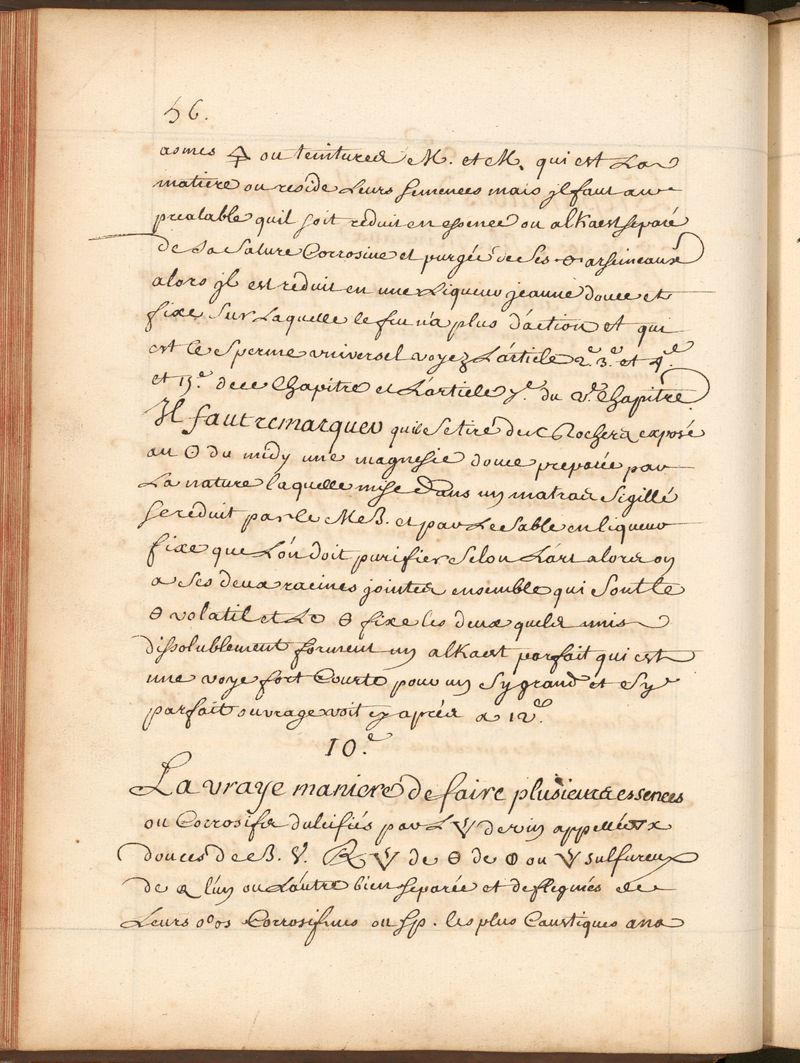 56.
asmes 🜍 ou teintures M. et M. qui est La
matiere ou reside Leurs semences mais jl faut au
prealable quil soit reduit en essence ou alkaest separé
de Sa Salure Corrosive et purgée de Ses 🜔 arseineaux
alors jl est reduit en une Liqueur jeaune douce et
fixe Sur Laquelle le feu n'a plus d'action et qui
est le Sperme universel voyez L'article 2.e 3.e et 4.e
et 15.e de ce Chapitre et L'article 7.e du 2.e Chapitre
Il faut remarquer qu'il se tire des Rochers exposé
au ⊙ du midy une magnesie douce preparée par
La nature laquelle mise Dans un matras Sigillé
se reduit par le M B. et par Le Sable en liqueur
fixe que L'on doit purifier Selon L'art alors on
a Ses deux racines jointes ensemble qui Sont le
🜔 volatil et Le 🜔 fixe les deux unis
dissolublement forment un alkaest parfait qui est
une voye fort Courte pour un Sy grand et Sy
parfait ouvrage voit cy après a 12.
10.e
La vraye maniere de faire plusieurs essences
ou Corrosifs dulcifiés par L 🜄 de vin appellées
douces de B. V. ℞ 🜄 de 🜔 de 🜕 ou 🜄 sulfureux
de l'un ou L'autre bien separée et deflegmés de
Leurs Corrosifves ou sp. les plus Caustiques ana